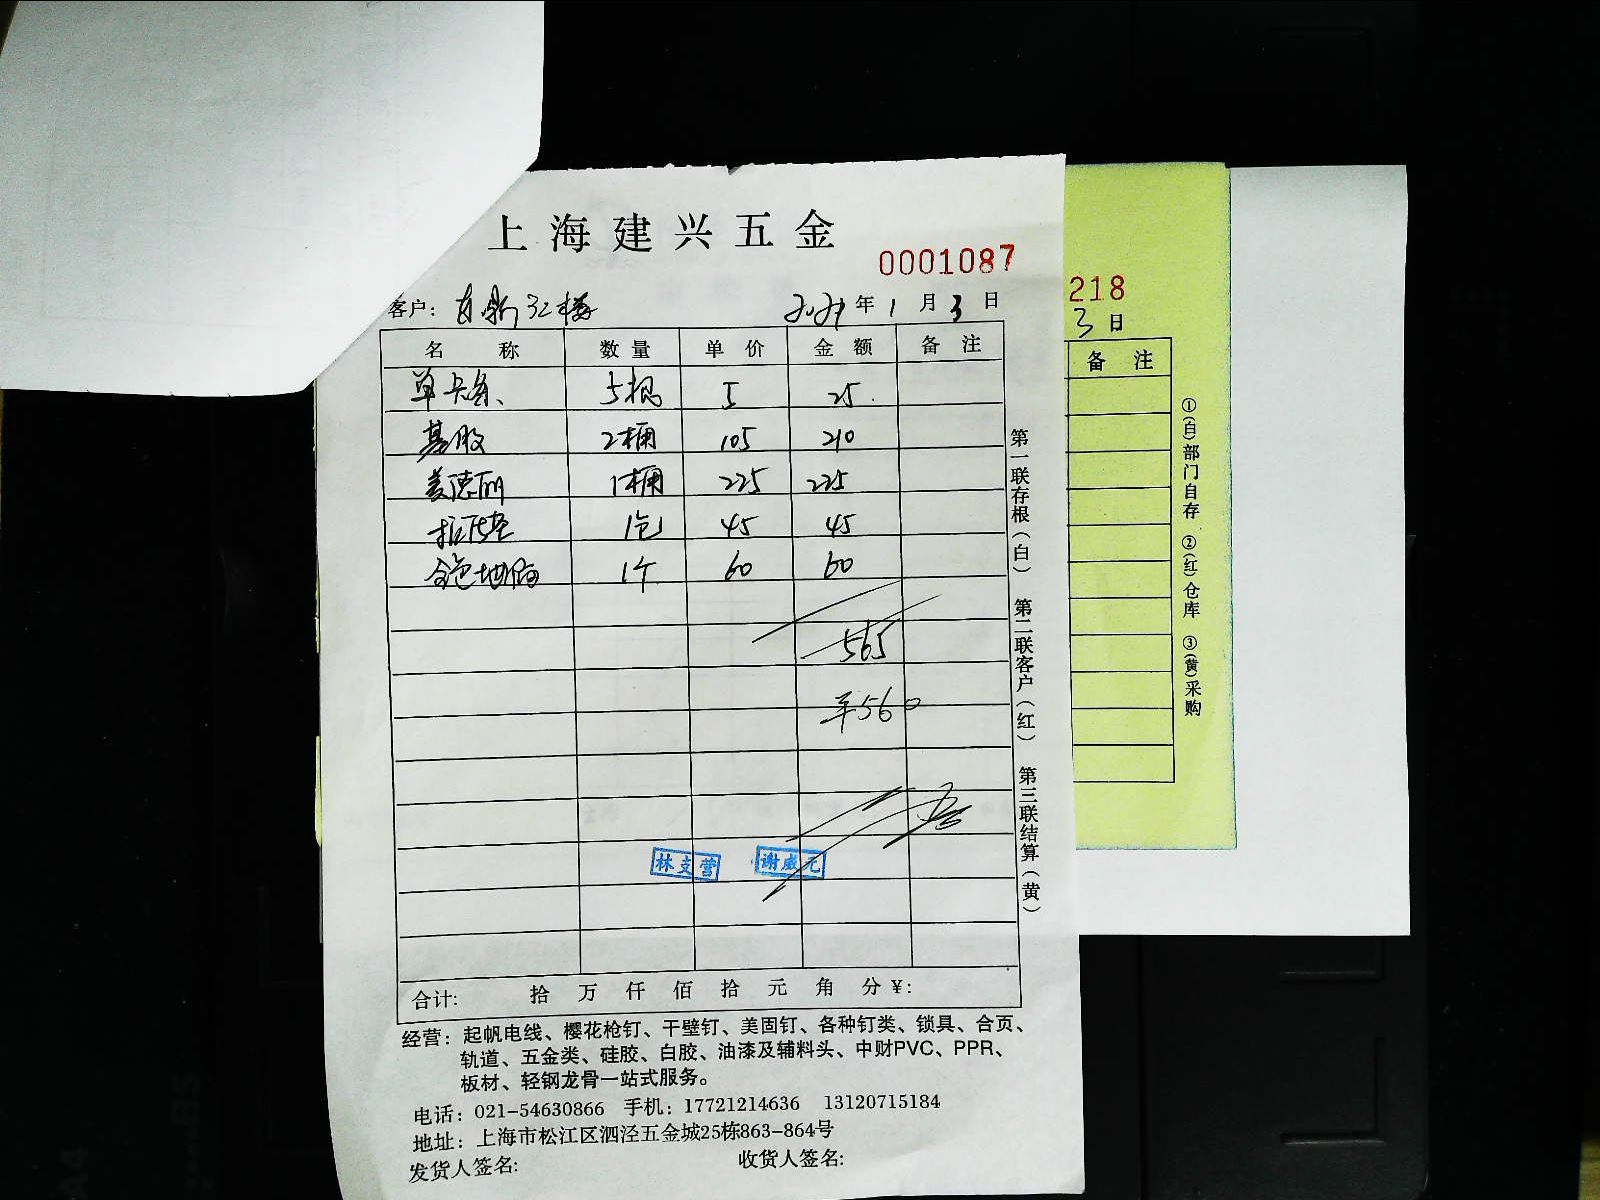 上海建兴五金
0001087
客户:
2021年1月3日
名 称 数量 单价 金额 备注
单卡条、 5根 5 25.
基股 2桶 105 210
美德丽 1桶 225 225
1包 45 45
金色地漏 1个 60 60
565
¥560
林支营 谢威元
合计: 拾 万 仟 佰 拾 元 角 分 ¥:
经营:起帆电线、樱花枪钉、干壁钉、美固钉、各种钉类、锁具、合页、
轨道、五金类、硅胶、白胶、油漆及辅料头、中财PVC、PPR、
板材、轻钢龙骨一站式服务。
电话:021-54630866 手机:17721214636 13120715184
地址:上海市松江区泗泾五金城25栋863-864号
发货人签名: 收货人签名:
第一联存根(白) 第二联客户(红) 第三联结算(黄)
218
3日
备注
①(白)部门自存 ②(红)仓库 ③(黄)采购